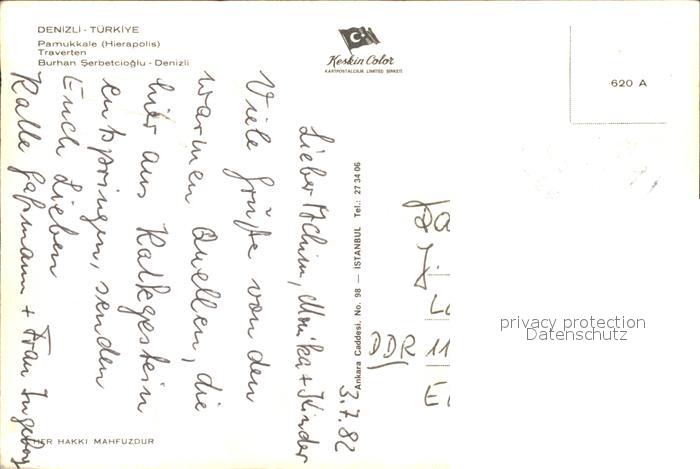 DENIZLI - TÜRKİYE
Pamukkale (Hierapolis)
Traverten
Burhan Şerbetcioğlu - Denizli
Keskin Color
KARTPOSTALCILIK LIMITED ŞIRKETI
620 A
3.7.82
Lieber Achim, Monika + Kinder
Viele Grüße von den
warmen Quellen, die
hier aus Kalkgestein
entspringen, senden
Euch Lieben
Kalle Gaßmann + Frau Ingeborg
Ankara Caddesi, No. 98 — İSTANBUL Tel.: 27 34 06
DDR 11
privacy protection
Datenschutz
HER HAKKI MAHFUZDUR